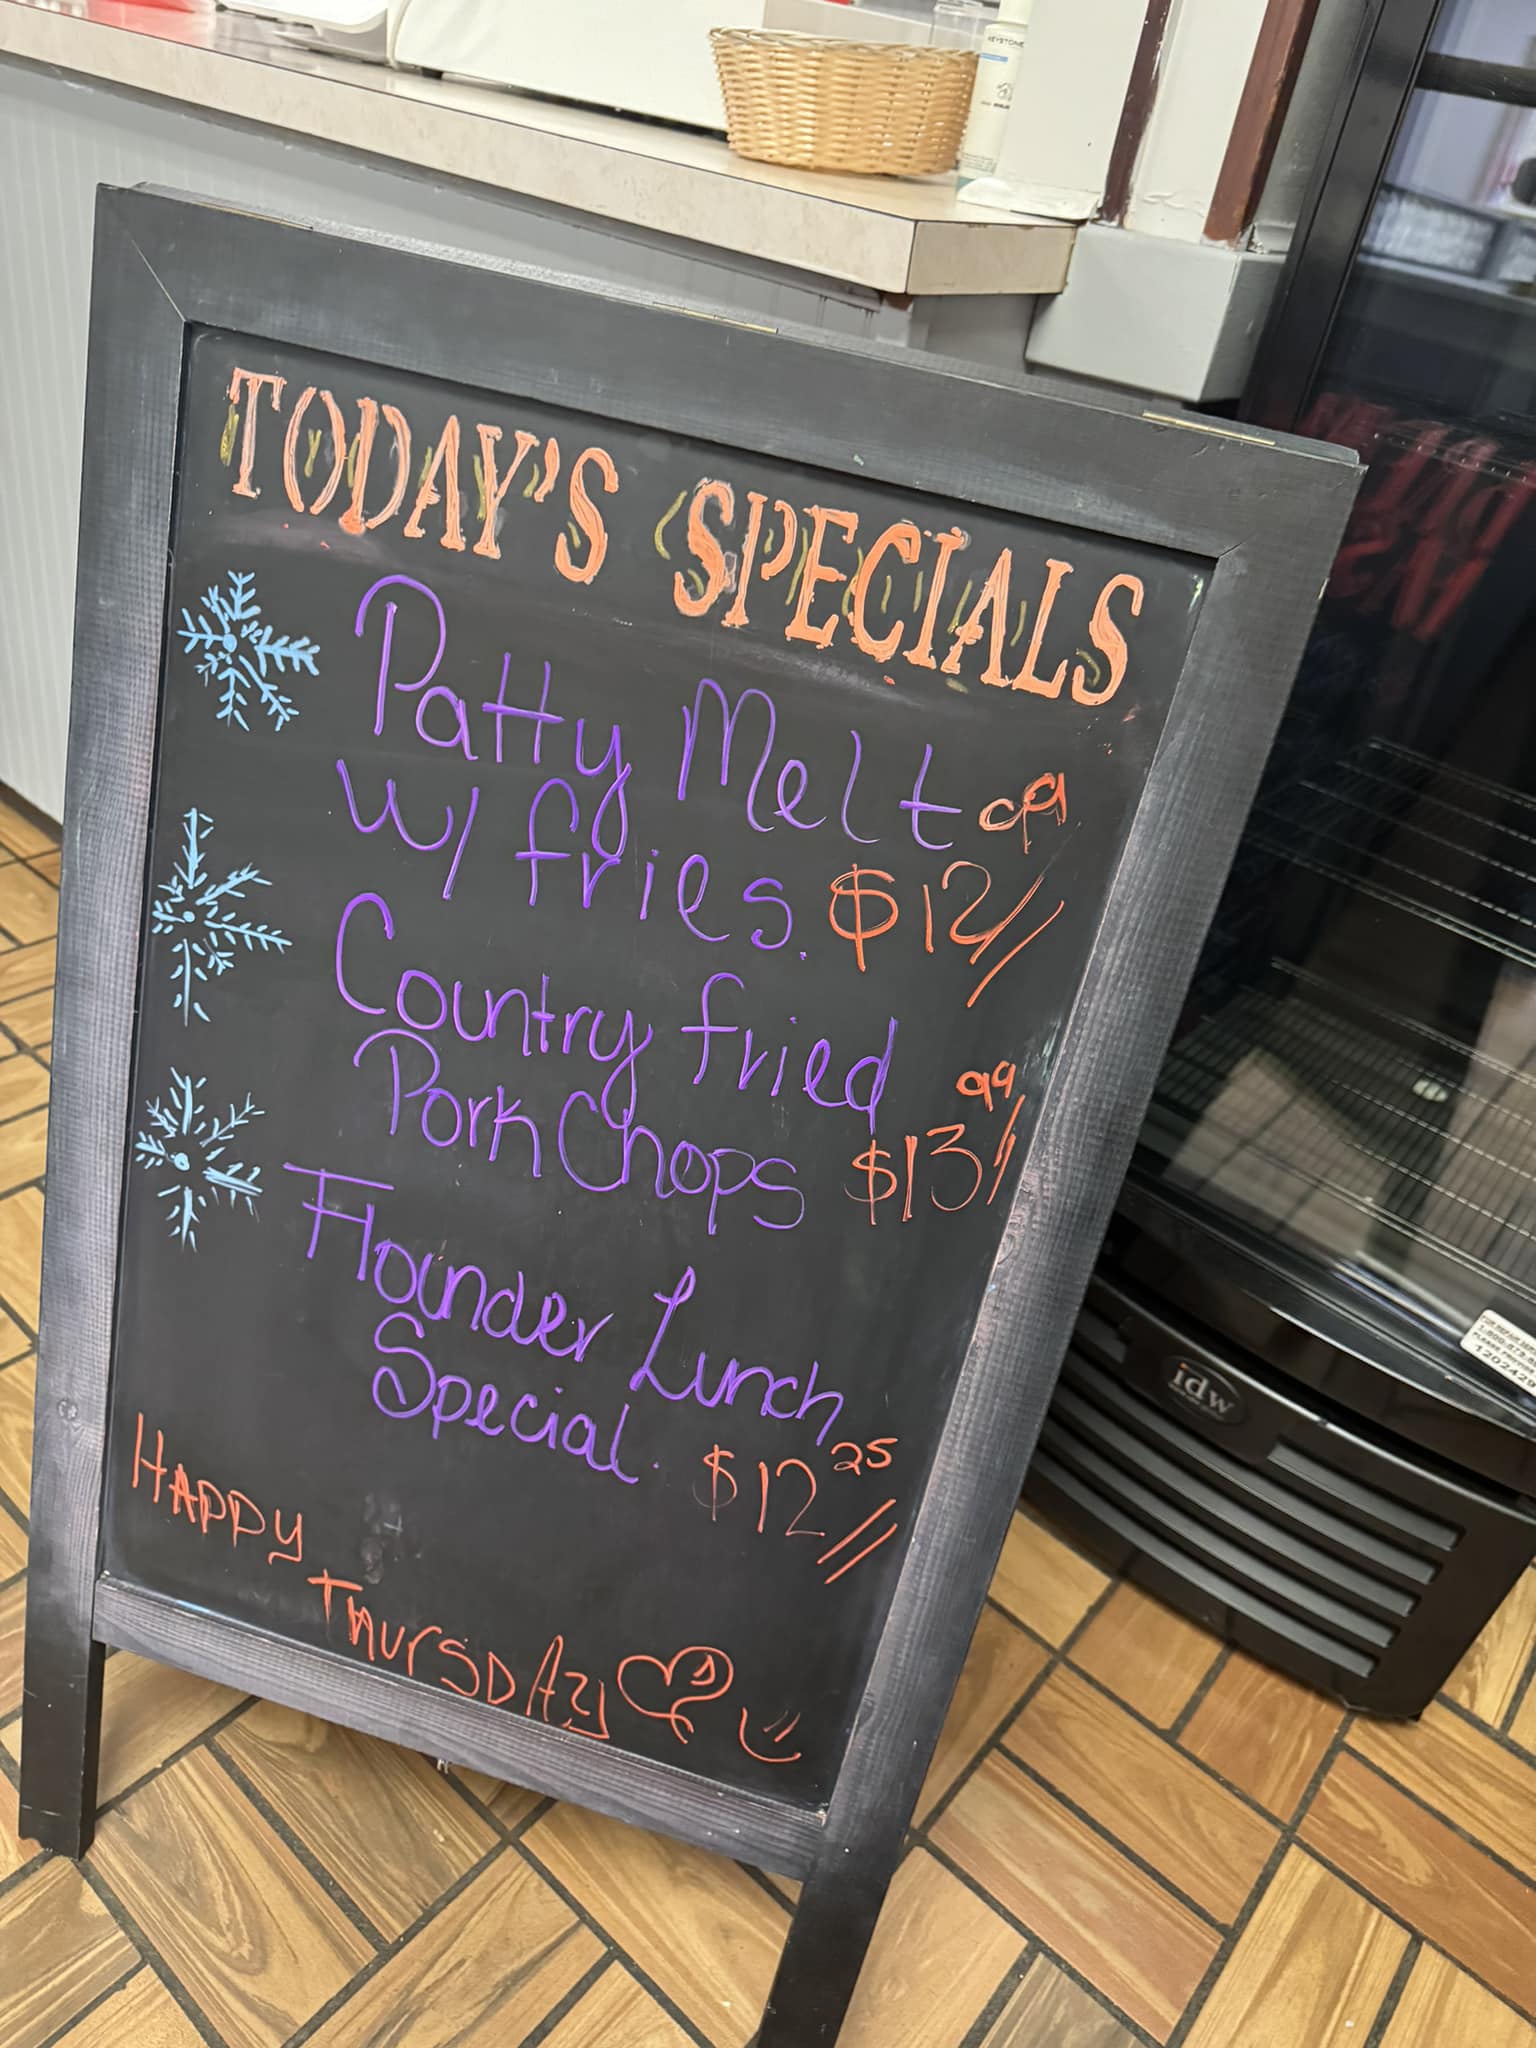 KEYSTONE
TODAY'S SPECIALS
Patty Melt
w/ fries. $12 99
Country fried
Pork Chops $13 99
Flounder Lunch
Special. $12 25
HAPPY
THURSDAY
idw